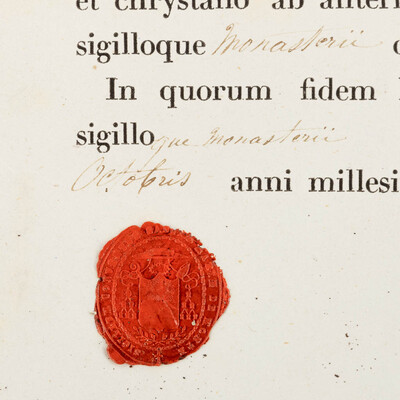 et chrystallo ab anteri
sigilloque Monasterii
In quorum fidem
sigillo que Monasterii
Octobris anni millesi